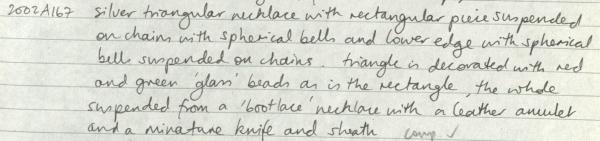 2002A167 silver triangular necklace with rectangular piece suspended
on chains with spherical bells and lower edge with spherical
bells suspended on chains. triangle is decorated with red
and green 'glass' beads as is the rectangle, the whole
suspended from a 'bootlace' necklace with a leather amulet
and a minature knife and sheath comp ✓